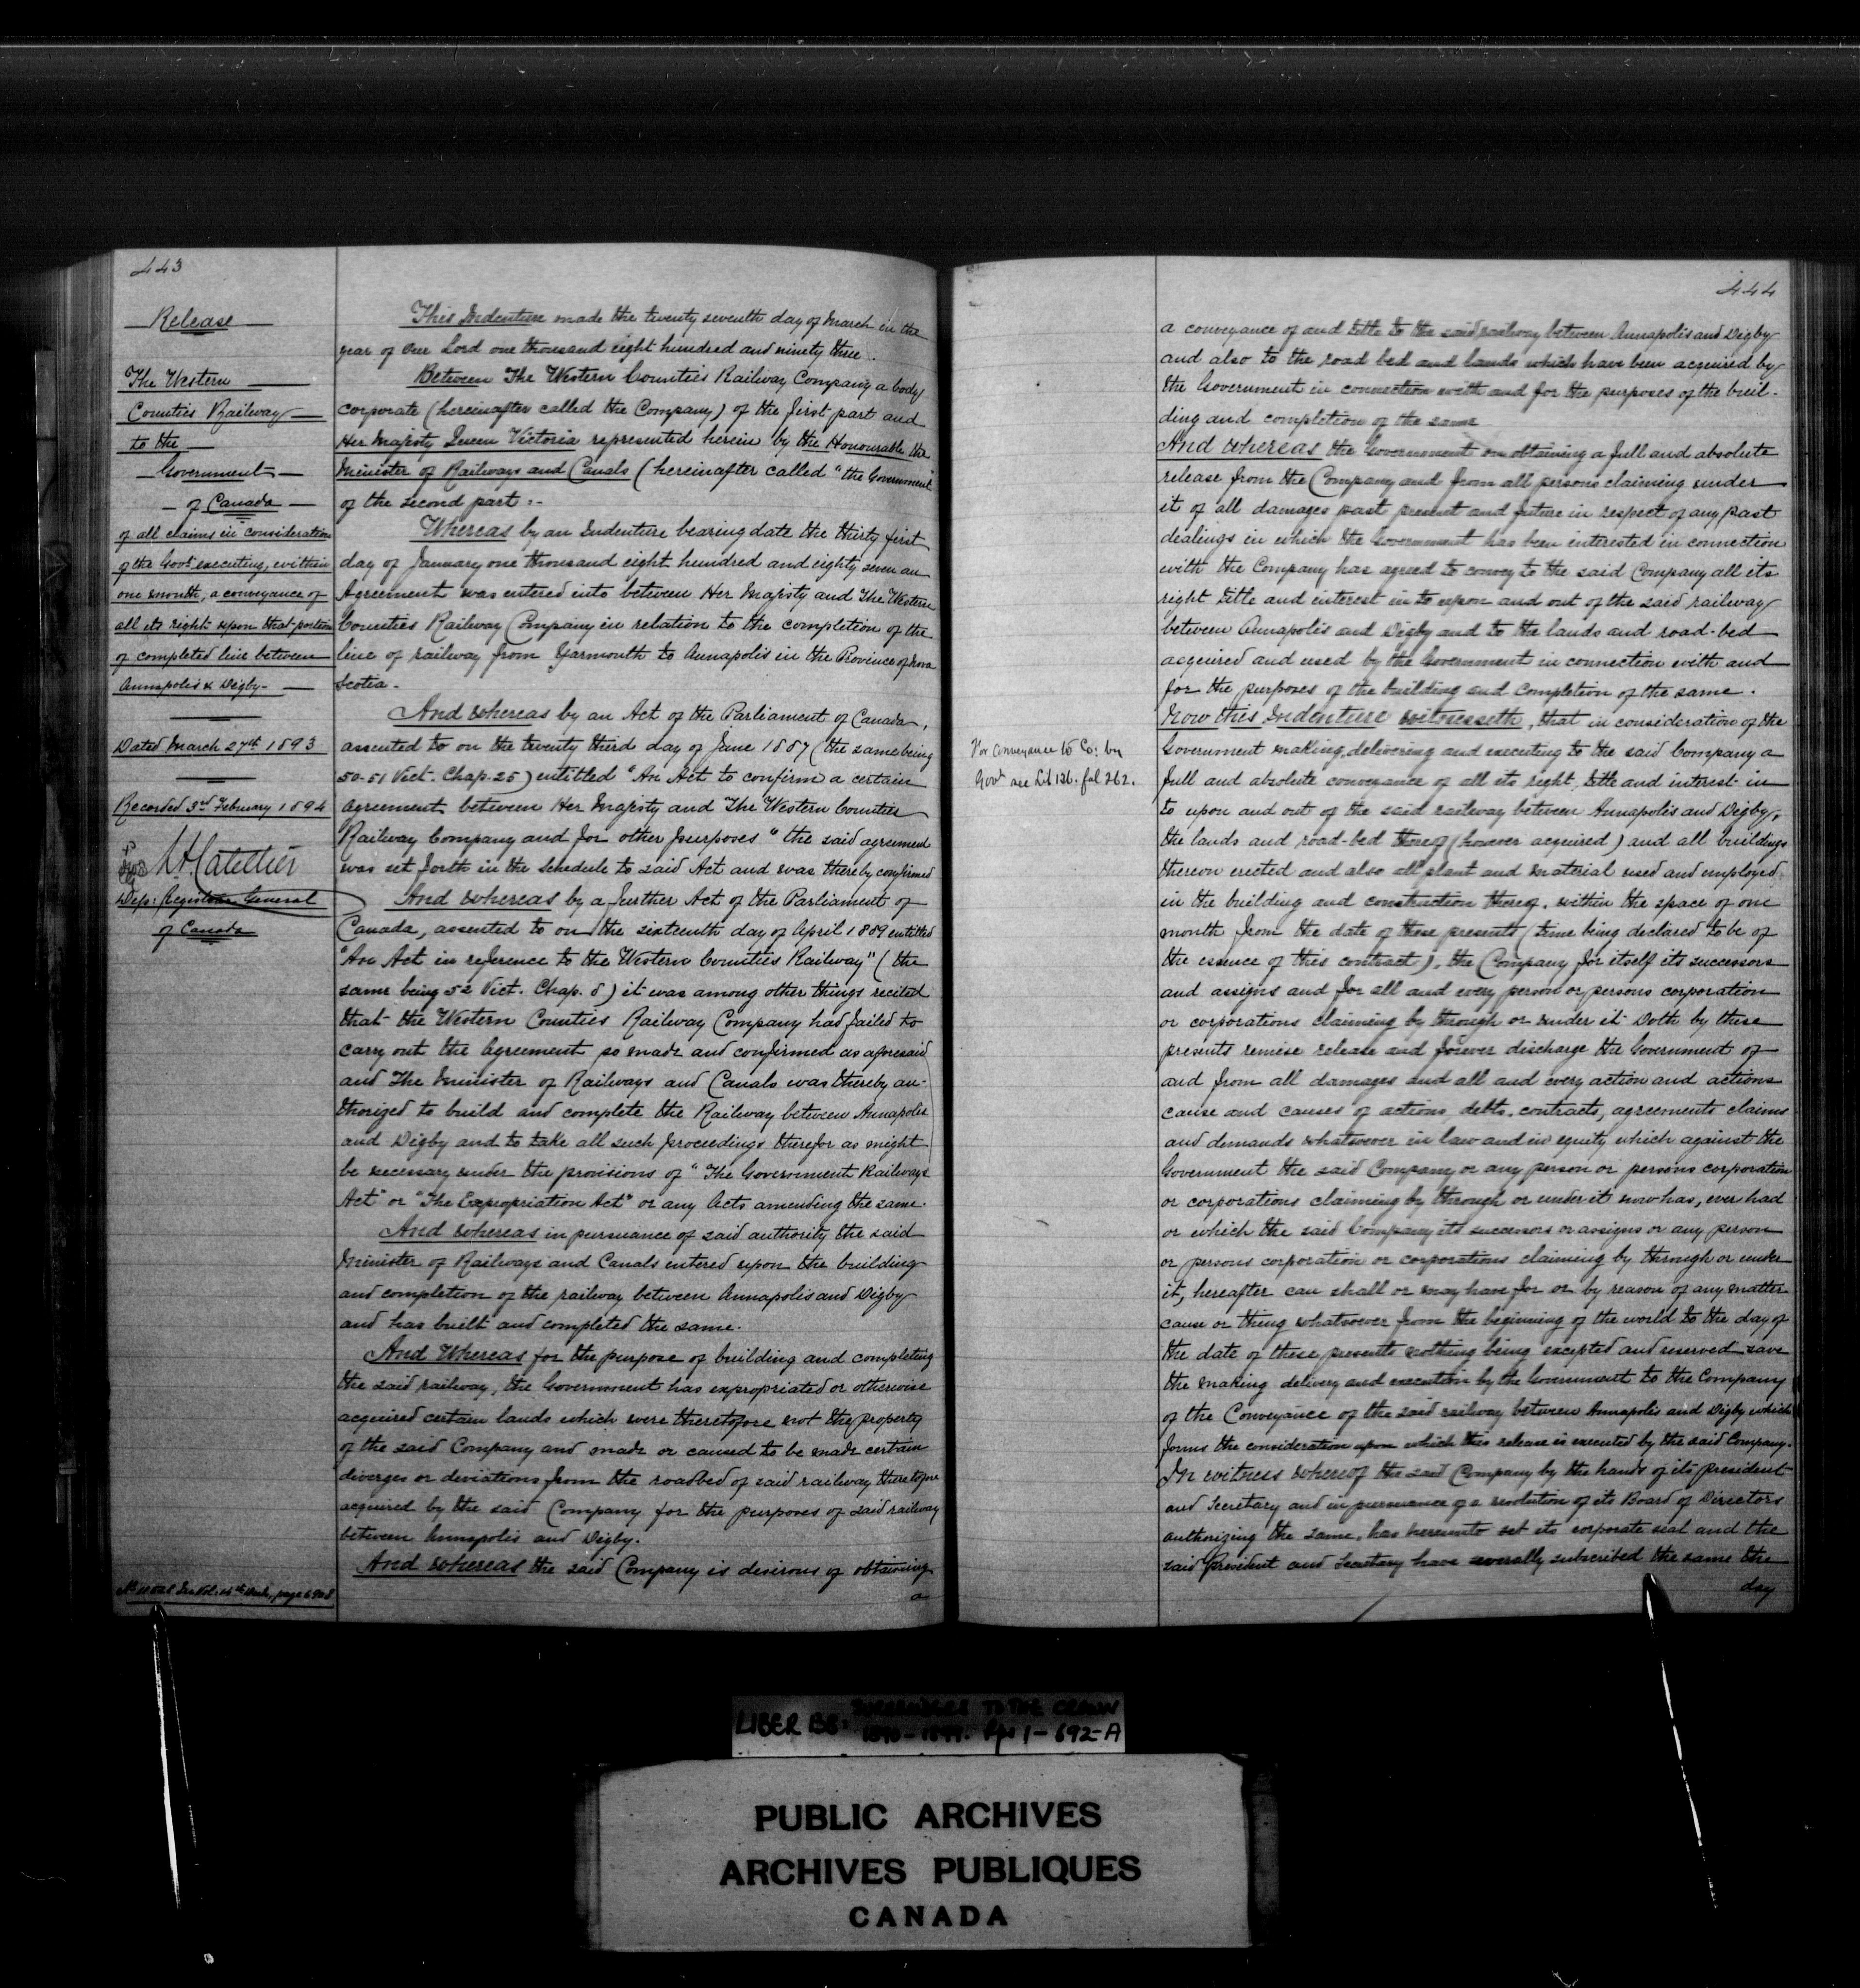 443
Release
The Western
Counties Railway
to the
Government
of Canada
of all claims in consideration
of the Govt executing, within
one month, a conveyance of
all its right upon that portion
of completed line between
Annapolis & Digby-
Dated March 27th 1893
Recorded 3rd February 1894
Dep: Registrar General
of Canada
This Indenture made the twenty seventh day of March in the
year of Our Lord one thousand eight hundred and ninety three.
Between The Western Counties Railway Company a body
corporate (hereinafter called the Company) of the first part and
Her Majesty Queen Victoria represented herein by the Honourable the
Minister of Railways and Canals (hereinafter called "the Government"
of the second part:-
Whereas by an Indenture bearing date the thirty first
day of January one thousand eight hundred and eighty seven an
Agreement was entered into between Her Majesty and The Western
Counties Railway Company in relation to the completion of the
line of railway from Yarmouth to Annapolis in the Province of Nova
Scotia-
And whereas by an Act of the Parliament of Canada,
assented to on the twenty third day of June 1887 (the same being
50-51 Vict. Chap. 25) entitled "An Act to confirm a certain
agreement between Her Majesty and The Western Counties
Railway Company and for other purposes" the said agreement
was set forth in the Schedule to said Act and was thereby confirmed
And whereas by a further Act of the Parliament of
Canada, assented to on the sixteenth day of April 1889 entitled
"An Act in reference to the Western Counties Railway" (the
same being 52 Vict. Chap. 8) it was among other things recited
that the Western Counties Railway Company had failed to
carry out the Agreement so made and confirmed as aforesaid
and The Minister of Railways and Canals was thereby au-
thorized to build and complete the Railway between Annapolis
and Digby and to take all such proceedings therefor as might
be necessary under the provisions of "The Government Railways
Act" or "The Expropriation Act" or any Acts amending the same.
And whereas in pursuance of said authority the said
Minister of Railways and Canals entered upon the building
and completion of the railway between Annapolis and Digby
and has built and completed the same.
And Whereas for the purpose of building and completing
the said railway, the Government has expropriated or otherwise
acquired certain lands which were theretofore not the property
of the said Company and made or caused to be made certain
diverges or deviations from the roadbed of said railway theretofore
acquired by the said Company for the purposes of said railway
between Annapolis and Digby.
And whereas the said Company is desirous of obtaining
a
444
For conveyance to Co: by
Govt see Lib 136. fol 262.
a conveyance of and title to the said railway between Annapolis and Digby
and also to the road bed and lands which have been acquired by
the Government in connection with and for the purposes of the buil-
ding and completion of the same
And whereas the Government on obtaining a full and absolute
release from the Company and from all persons claiming under
it of all damages past present and future in respect of any past
dealings in which the Government has been interested in connection
with the Company has agreed to convey to the said Company all its
right title and interest in to upon and out of the said railway
between Annapolis and Digby and to the lands and road-bed
acquired and used by the Government in connection with and
for the purposes of the building and completion of the same.
Now this Indenture witnesseth, that in consideration of the
Government making, delivering and executing to the said Company a
full and absolute conveyance of all its right, title and interest in
to upon and out of the said railway between Annapolis and Digby,
the lands and road-bed thereof (however acquired) and all buildings
thereon erected and also all plant and material used and employed
in the building and construction thereof, within the space of one
month from the date of these presents (time being declared to be of
the essence of this contract), the Company for itself its successors
and assigns and for all and every person or persons corporation
or corporations claiming by through or under it Doth by these
presents remise release and forever discharge the Government of
and from all damages and all and every action and actions
cause and causes of actions, debts, contracts, agreements claims
and demands whatsoever in law and in equity which against the
Government the said Company or any person or persons corporation
or corporations claiming by through or under it now has, ever had
or which the said Company its successors or assigns or any person
or persons corporation or corporations claiming by through or under
it, hereafter can shall or may have for or by reason of any matter
cause or thing whatsoever from the beginning of the world to the day of
the date of these presents nothing being excepted and reserved save
the making delivery and execution by the Government to the Company
of the Conveyance of the said railway between Annapolis and Digby which
forms the consideration upon which this release is executed by the said Company.
In witness whereof the said Company by the hands of its president
and Secretary and in pursuance of a resolution of its Board of Directors
authorizing the same, has hereunto set its corporate seal and the
said President and Secretary have severally subscribed the same the
day
LIBER BB: SURRENDERS TO THE CROWN
1890-1899. Pgs 1-692-A
PUBLIC ARCHIVES
ARCHIVES PUBLIQUES
CANADA